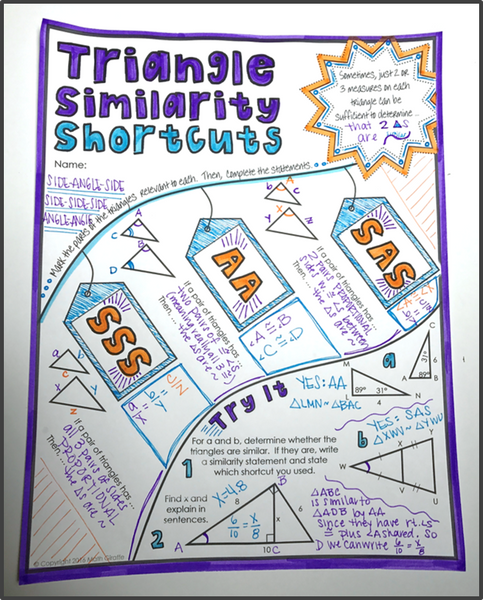 Triangle
Similarity
Shortcuts
Sometimes, just 2 or
3 measures on each
triangle can be
sufficient to determine...
that 2 △s
are ~
Name:
SIDE-ANGLE-SIDE
SIDE-SIDE-SIDE
ANGLE-ANGLE
Mark the parts of the triangles relevant to each. Then, complete the statements.
SAS
If a pair of triangles has
2 pairs proportional
sides w/ ≅ ∠s between
Then... the △s are ~
AA
If a pair of triangles has
two pairs of ≅ ∠s
(meaning really all 3)
Then... the △s are ~
∠A ≅ ∠B
∠C ≅ ∠D
SSS
If a pair of triangles has
all 3 pairs of sides
PROPORTIONAL
Then... the △s are ~
a/x = b/y = c/z
Try It
a
YES: AA
△LMN ~ △BAC
M
89°
31°
L
N
C
31°
89°
A
B
1
For a and b, determine whether the
triangles are similar. If they are, write
a similarity statement and state
which shortcut you used.
b
YES: SAS
△XWV ~ △YWU
W
X
V
Y
U
2
Find x and
explain in
sentences.
x=4.8
6/10 = x/8
A
B
8
x
6
10
C
D
△ABC
is similar to
△ADB by AA
since they have rt. ∠s
≅ plus ∠A shared. So
we can write 6/10 = x/8
© Copyright 2016 Math Giraffe